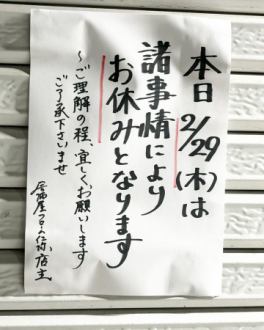 本日2/29(木)は
諸事情により
お休みとなります
～ご理解の程、宜しくお願いします
ご了承下さいませ
居酒屋 店主